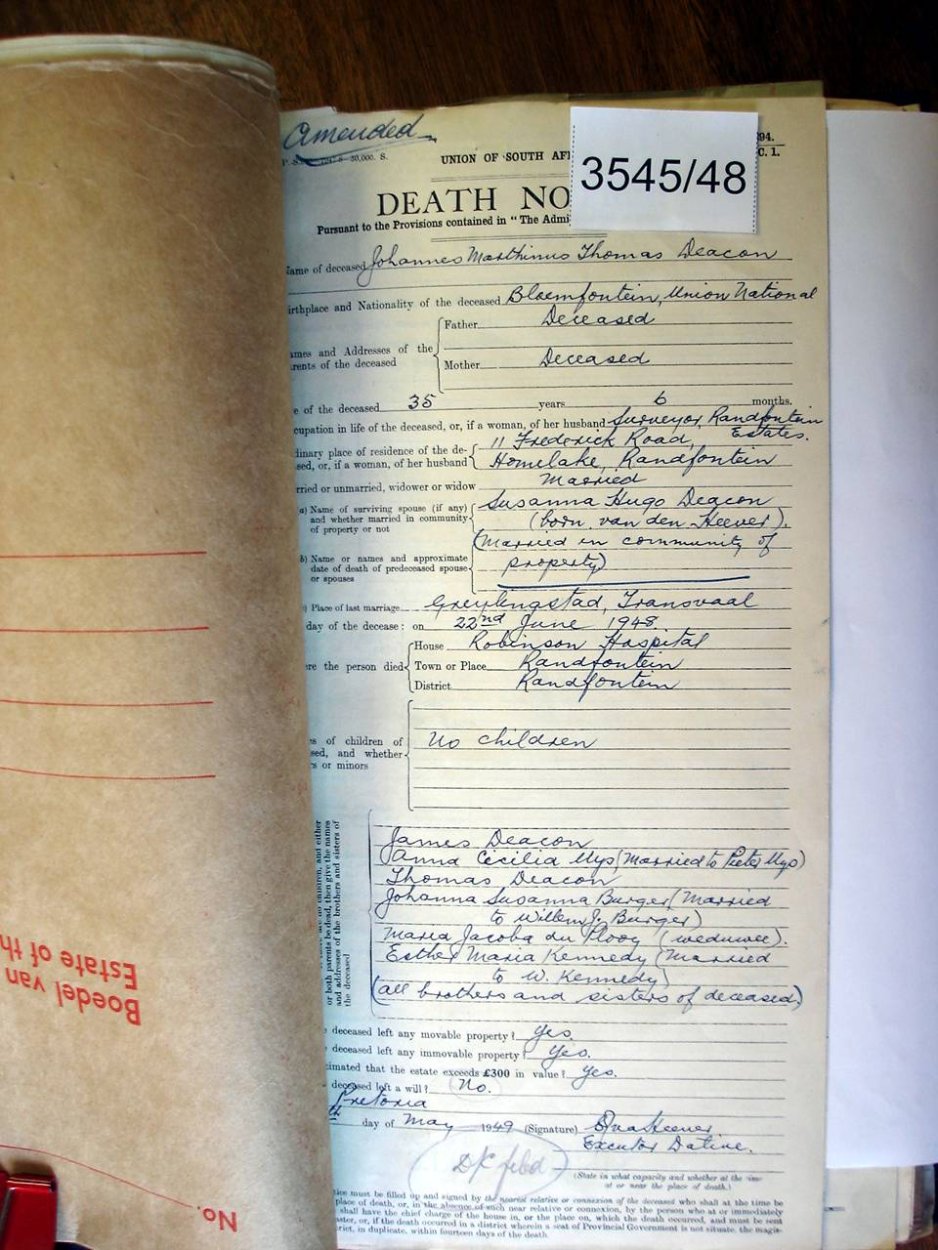 Amended
30,000. S.
UNION OF SOUTH AF
294.
C. 1.
3545/48
DEATH NO
Pursuant to the Provisions contained in "The Admi
ame of deceased Johannes Marthinus Thomas Deacon
irthplace and Nationality of the deceased Bloemfontein, Union National
ames and Addresses of the
rents of the deceased
Father Deceased
Mother Deceased
e of the deceased 35 years 6 months.
cupation in life of the deceased, or, if a woman, of her husband Surveyor, Randfontein
Estates.
dinary place of residence of the de-
sed, or, if a woman, of her husband
11 Frederick Road,
Homelake, Randfontein
rried or unmarried, widower or widow Married
a) Name of surviving spouse (if any)
and whether married in community
of property or not
Susanna Hugo Deacon
(born van den Heever).
(Married in community of
property)
b) Name or names and approximate
date of death of predeceased spouse
or spouses
) Place of last marriage Greylingstad, Transvaal
day of the decease: on 22nd June 1948
ere the person died
House Robinson Hospital
Town or Place Randfontein
District Randfontein
s of children of
sed, and whether
s or minors
No children
or both parents be dead, then give the names
and addresses of the brothers and sisters of
the deceased
James Deacon
Anna Cecilia Uys (Married to Pieter Uys)
Thomas Deacon
Johanna Susanna Burger (Married
to Willem J. Burger)
Maria Jacoba du Plooy (weduwee).
Esther Maria Kennedy (Married
to W. Kennedy)
(all brothers and sisters of deceased)
deceased left any movable property? Yes.
deceased left any immovable property? Yes.
timated that the estate exceeds £300 in value? Yes.
deceased left a will? No.
Pretoria
th day of May 1949 (Signature)
Executor Dative.
D/C filed
(State in what capacity and whether at the time
at or near the place of death.)
tice must be filled up and signed by the nearest relative or connexion of the deceased who shall at the time be
place of death, or, in the absence of such near relative or connexion, by the person who at or immediately
shall have the chief charge of the house in, or the place on, which the death occurred, and must be sent
aster, or, if the death occurred in a district wherein a seat of Provincial Government is not situate, the magis-
rict, in duplicate, within fourteen days of the death.
Boedel van
Estate of th
No.